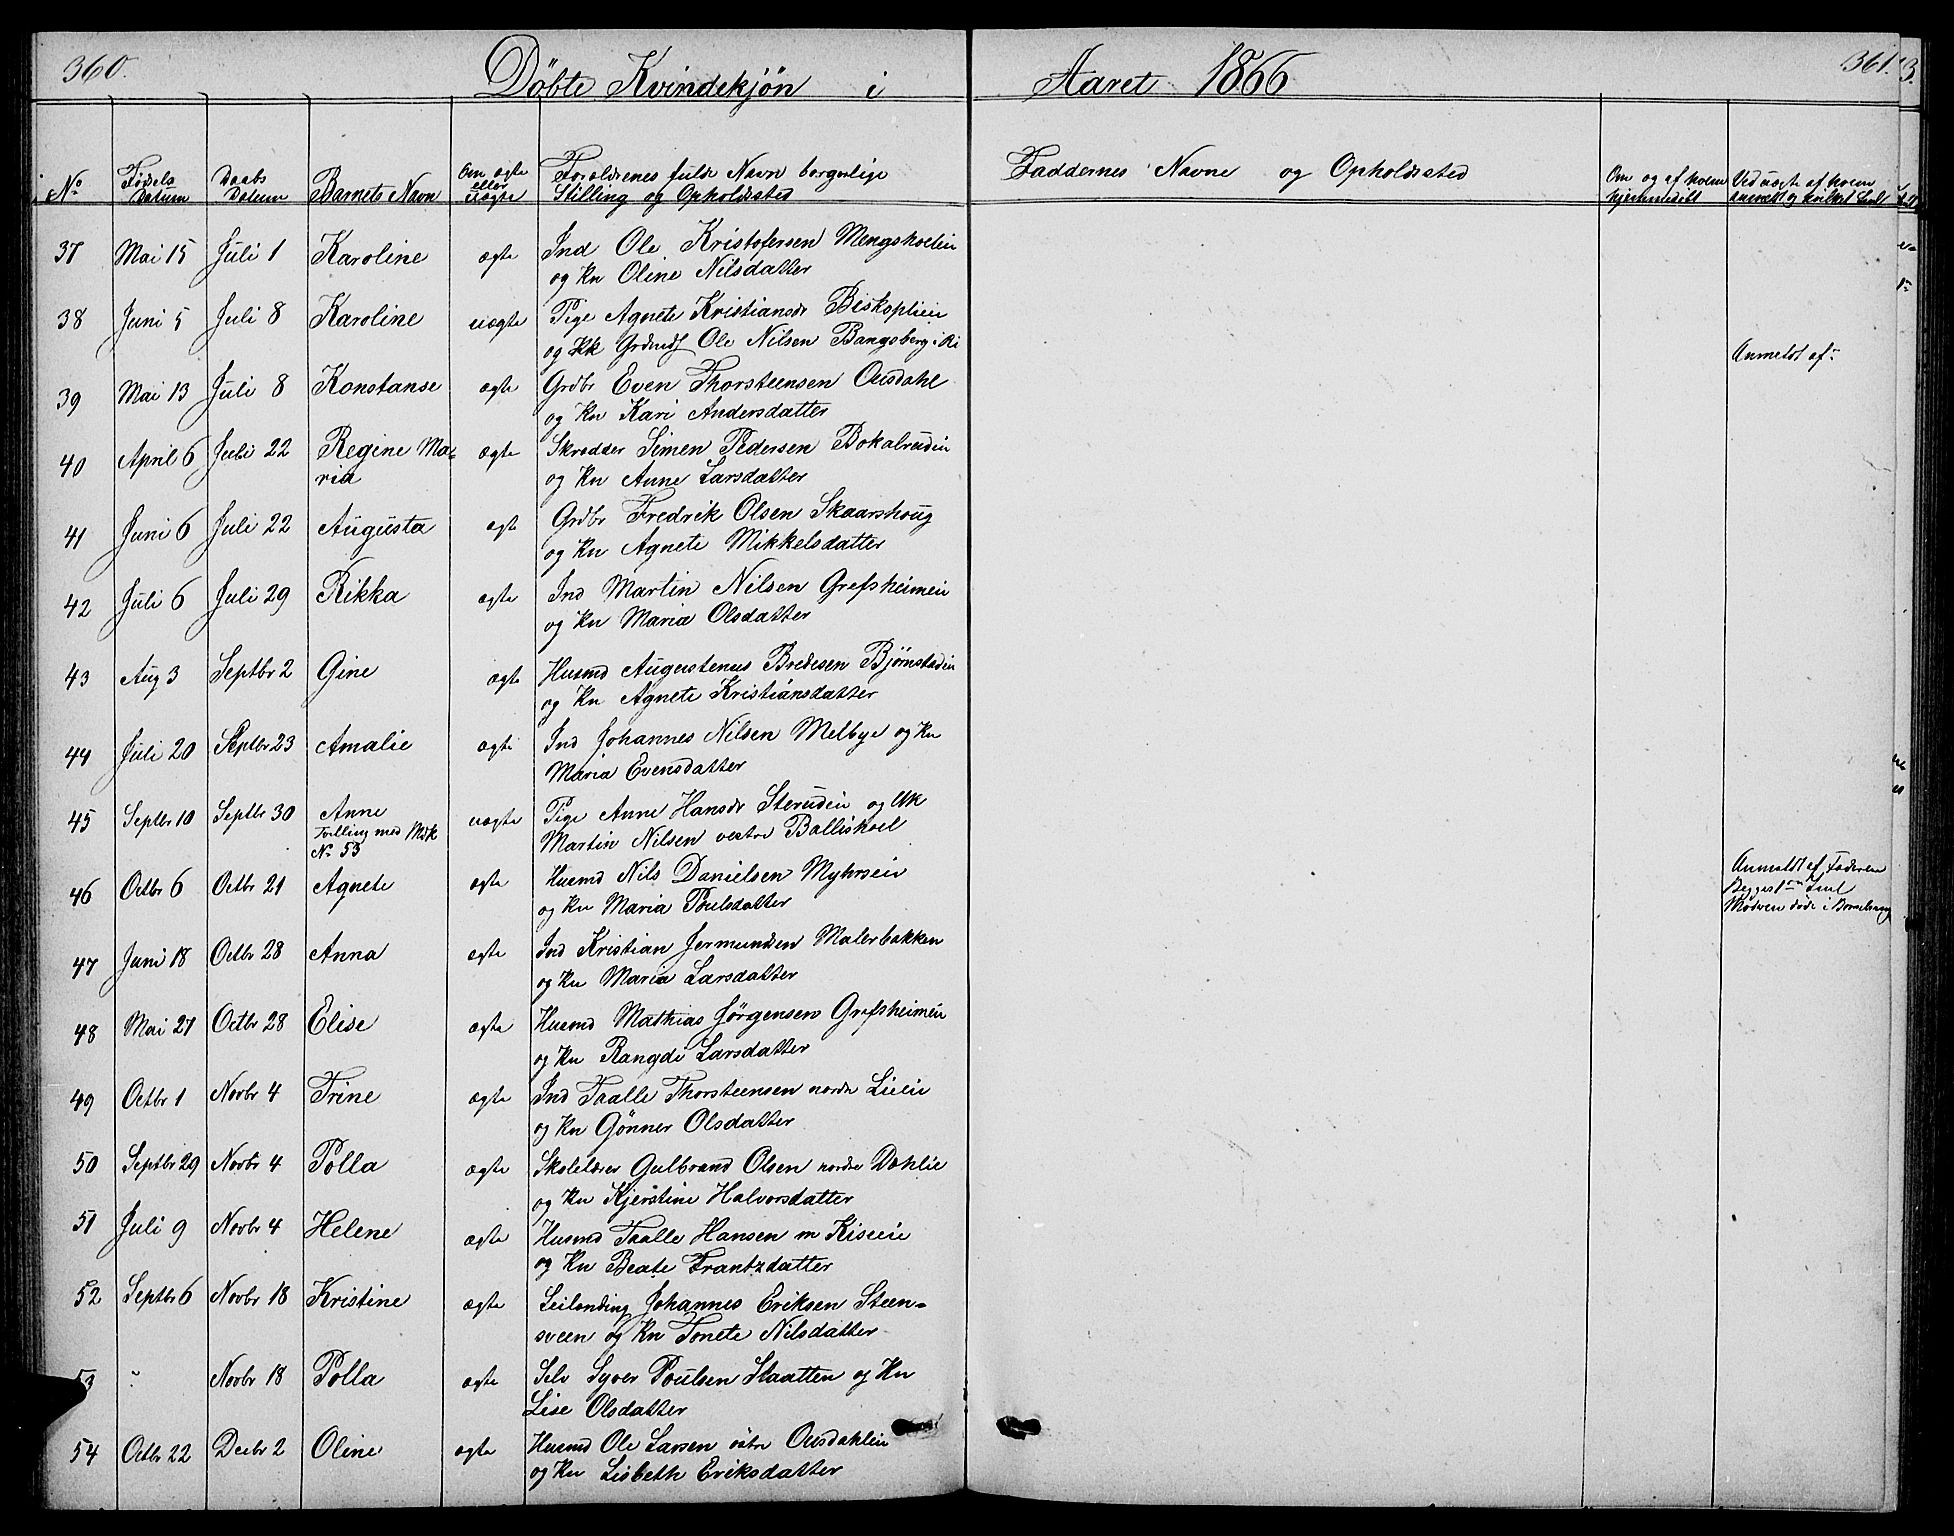 360.
Döbte Kvindekjön i
Aaret 1866
361.
No
Födsels Datum
Daabs Datum
Barnets Navn
Om ægte eller uægte
Forældrenes fulde Navn borgerlige
Stilling og Opholdssted
Faddernes Navne og Opholdssted
Om og af hvem hjemmedöbt
Ved uægte af hvem anmeldt og hvilket
37 Mai 15 Juli 1 Karoline ægte Ind Ole Kristofersen Mengshoelen
og Kn Oline Nilsdatter
38 Juni 5 Juli 8 Karoline uægte Pige Agnete Kristiansdr Biskoplien
og Ole Nilsen Bangsberg i Ri
Anmeldt af:
39 Mai 13 Juli 8 Konstanse ægte Grdbr Even Thorsteensen Ousdahl
og Kn Kari Andersdatter
40 April 6 Juli 22 Regine Ma-
ria
ægte Skrædder Simen Pedersen Bokalrudin
og Kn Anne Larsdatter
41 Juni 6 Juli 22 Augusta ægte Grdbr Fredrik Olsen Skaarshoug
og Kn Agnete Mikkelsdatter
42 Juli 6 Juli 29 Rikka ægte Ind Martin Nilsen Grefsheimeii
og Kn Maria Olsdatter
43 Aug 3 Septbr 2 Gine ægte Husmd Augustenus Bredesen Bjørnstadeii
og Kn Agnete Kristiansdatter
44 Juli 20 Septbr 23 Amalie ægte Ind Johannes Nilsen Melbye og Kn
Maria Evensdatter
45 Septbr 10 Septbr 30 Anne
Tvilling med Mdk
No 53
uægte Pige Anne Hansdr Sterudeii og Uk
Martin Nilsen vestre Ballishoel
Anmeldt af Faderen
Begges 1ste
Moderen döde i Barselseng
46 Octbr 6 Octbr 21 Agnete ægte Husmd Nils Danielsen Myhrseii
og Kn Maria Poulsdatter
47 Juni 18 Octbr 28 Anna ægte Ind Kristian Jermundsen Malerbakken
og Kn Maria Larsdatter
48 Mai 27 Octbr 28 Elise ægte Husmd Mathias Jørgensen Grefsheimeii
og Kn Rangdi Larsdatter
49 Octbr 1 Novbr 4 Trine ægte Ind Taalle Thorsteensen nordre Lieeie
og Kn Gönner Olsdatter
50 Septbr 29 Novbr 4 Polla ægte Skolelærer Gulbrand Olsen nordre Dæhlie
og Kn Kjerstine Halvorsdatter
51 Juli 9 Novbr 4 Helene ægte Husmd Taalle Hansen m Kiseeie
og Kn Beate Frantzdatter
52 Septbr 6 Novbr 18 Kristine ægte Leilending Johannes Eriksen Steen-
sveen og Kn Tonete Nilsdatter
53 " Novbr 18 Polla ægte Selv Syver Poulsen Staatten og Kn
Lise Olsdatter
54 Octbr 22 Decbr 2 Oline ægte Husmd Ole Larsen östre Ousdahleii
og Kn Lisbeth Eriksdatter